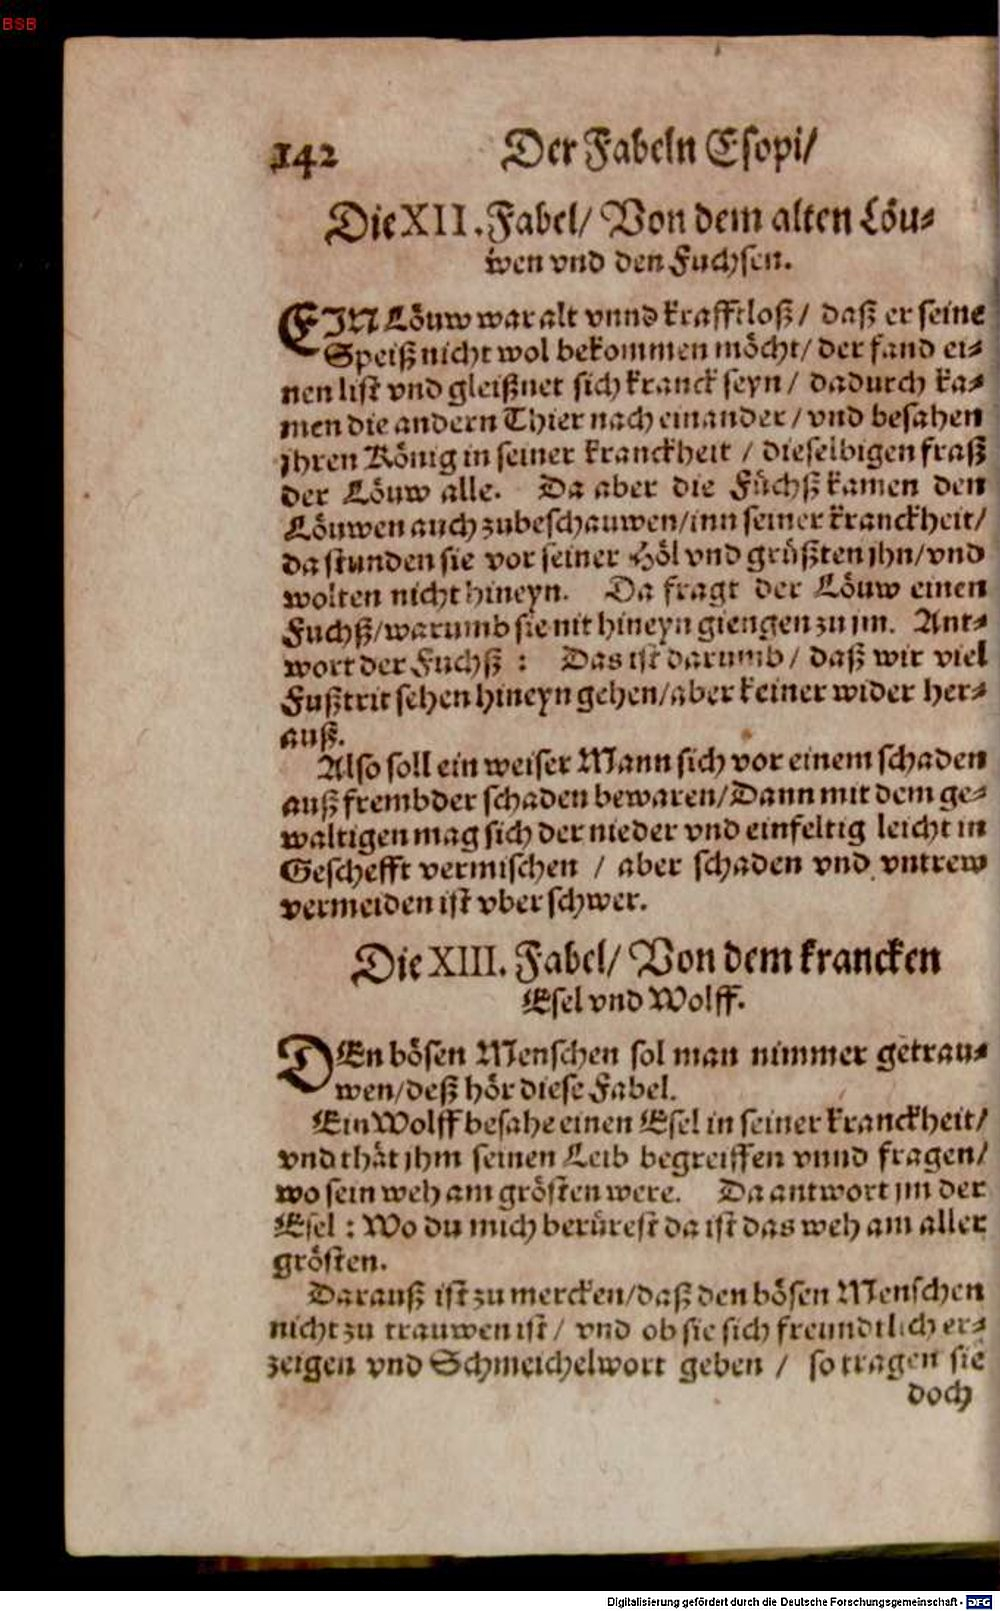 BSB
142 Der Fabeln Esopi/
Die XII. Fabel/ Von dem alten Löu⸗
wen vnd den Fuchsen.
EIN Löuw war alt vnnd krafftloß/ daß er seine
Speiß nicht wol bekommen möcht/ der fand ei⸗
nen list vnd gleißnet sich kranck seyn/ dadurch ka⸗
men die andern Thier nach einander/ vnd besahen
jhren König in seiner kranckheit/ dieselbigen fraß
der Löuw alle. Da aber die Füchß kamen den
Löuwen auch zubeschauwen/ inn seiner kranckheit/
da stunden sie vor seiner Höl vnd grüßten jhn/ vnd
wolten nicht hineyn. Da fragt der Löuw einen
Fuchß/ warumb sie nit hineyn giengen zu jm. Ant⸗
wort der Fuchß: Das ist darumb/ daß wir viel
Fußtrit sehen hineyn gehen/ aber keiner wider her⸗
auß.
Also soll ein weiser Mann sich vor einem schaden
auß frembder schaden bewaren/ Dann mit dem ge⸗
waltigen mag sich der nieder vnd einfeltig leicht in
Geschefft vermischen/ aber schaden vnd vntrew
vermeiden ist vber schwer.
Die XIII. Fabel/ Von dem krancken
Esel vnd Wolff.
DEn bösen Menschen sol man nimmer getrau⸗
wen/ deß hör diese Fabel.
Ein Wolff besahe einen Esel in seiner kranckheit/
vnd thät jhm seinen Leib begreiffen vnnd fragen/
wo sein weh am grösten were. Da antwort jm der
Esel: Wo du mich berürest da ist das weh am aller
grösten.
Darauß ist zu mercken/ daß den bösen Menschen
nicht zu trauwen ist/ vnd ob sie sich freundtlich er⸗
zeigen vnd Schmeichelwort geben/ so tragen sie
doch
Digitalisierung gefördert durch die Deutsche Forschungsgemeinschaft - DFG